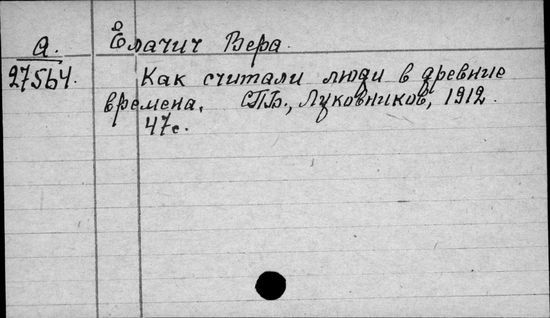 а. Ёлачич Вера.
27564. Как считали люди в древние
времена. СПБ., Луковников, 1912.
47с.